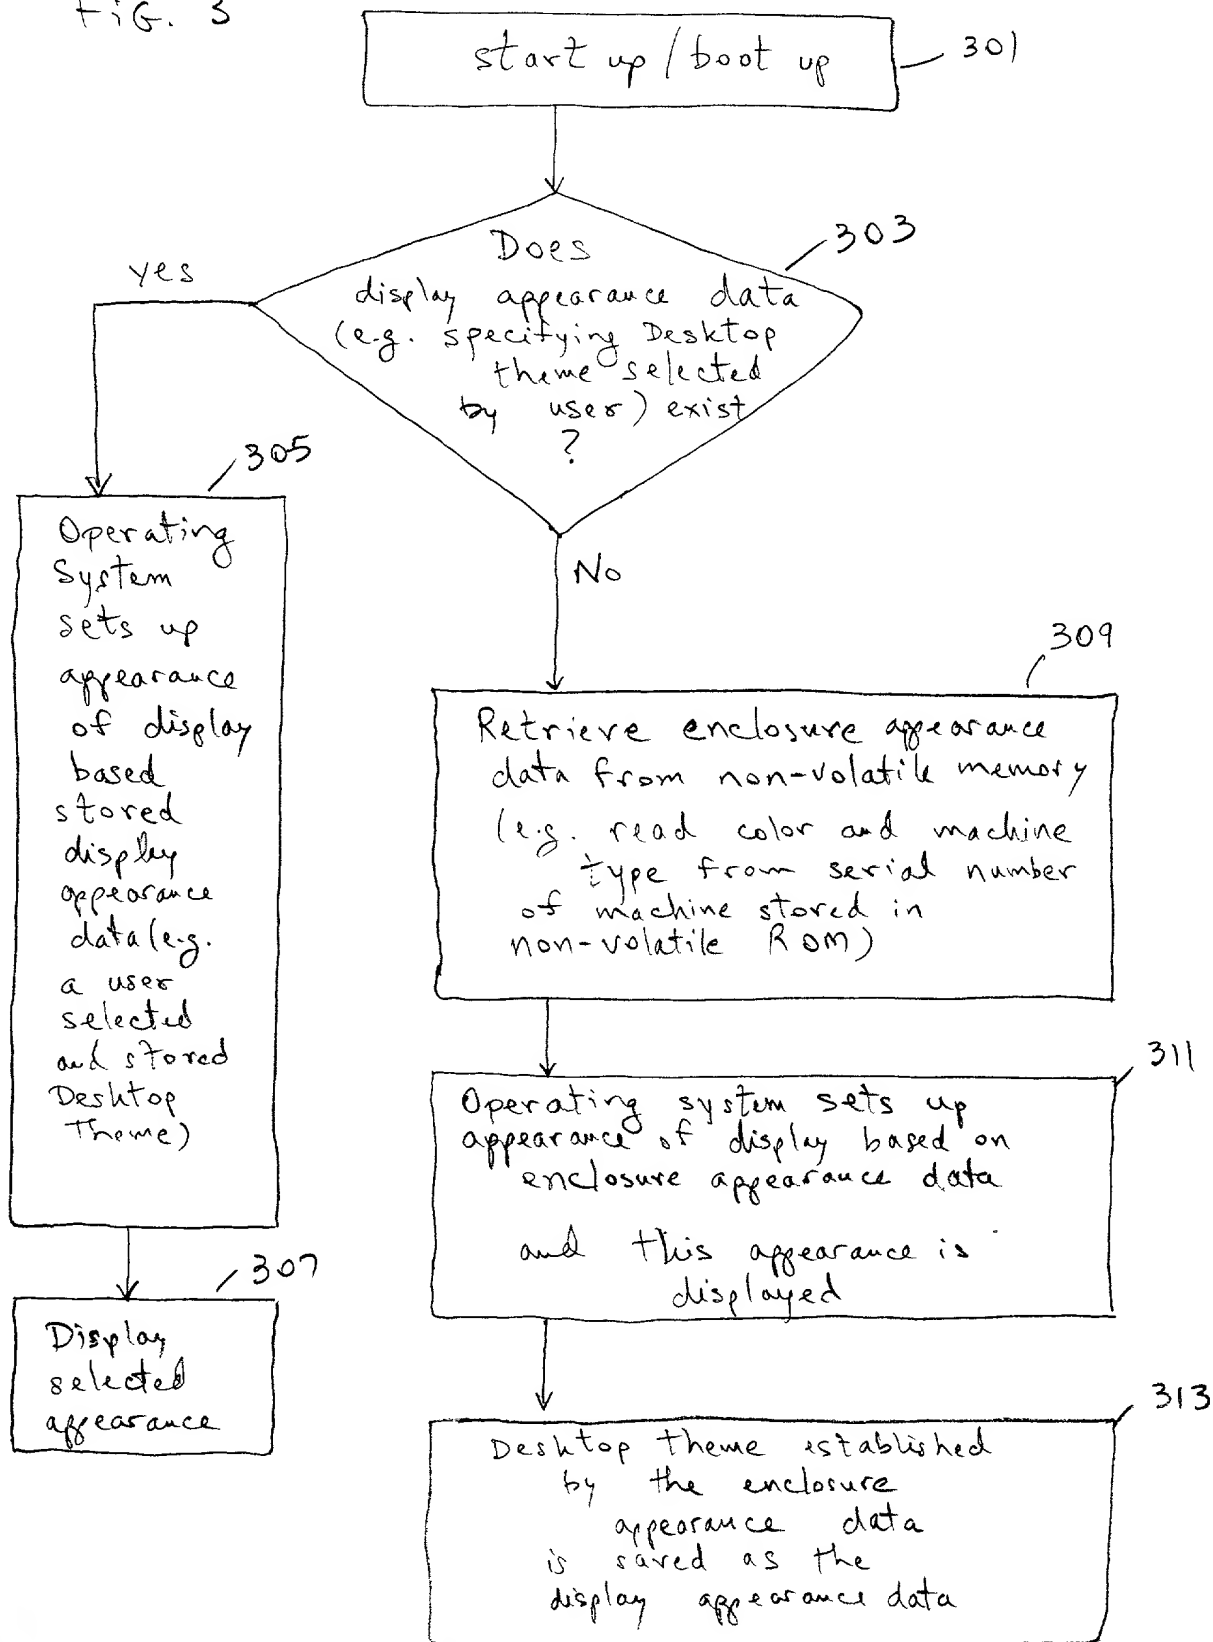 FiG. 3
start up / boot up
301
303
Does
display appearance data
(e.g. specifying Desktop
theme selected
by user) exist
?
yes
No
305
Operating
System
sets up
appearance
of display
based
stored
display
appearance
data (e.g.
a user
selected
and stored
Desktop
Theme)
307
Display
selected
appearance
309
Retrieve enclosure appearance
data from non-volatile memory
(e.g. read color and machine
type from serial number
of machine stored in
non-volatile ROM)
311
Operating system sets up
appearance of display based on
enclosure appearance data
and this appearance is
displayed
313
Desktop theme established
by the enclosure
appearance data
is saved as the
display appearance data